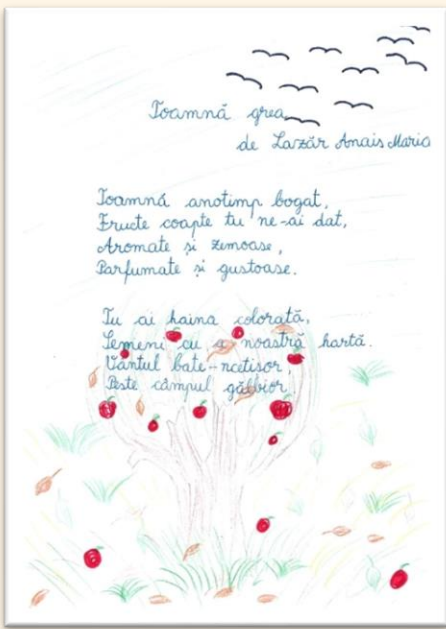 Toamnă grea
de Lazăr Anais Maria
Toamnă anotimp bogat,
Fructe coapte tu ne-ai dat,
Aromate și zemoase,
Parfumate și gustoase.
Tu ai haina colorată,
Semeni cu a noastră hartă.
Vântul bate-ncetișor,
Peste câmpul gălbior.